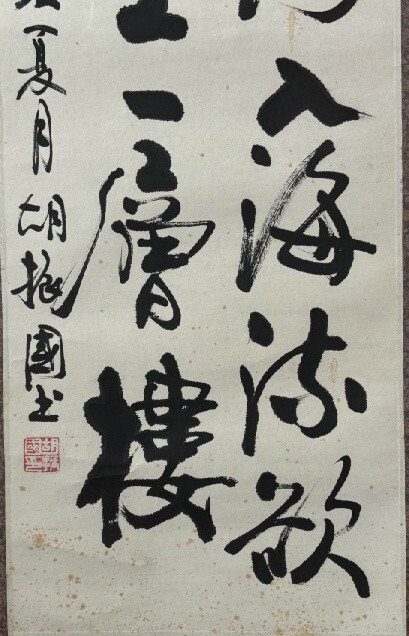 入海流欲
上一層樓
夏月胡振國书